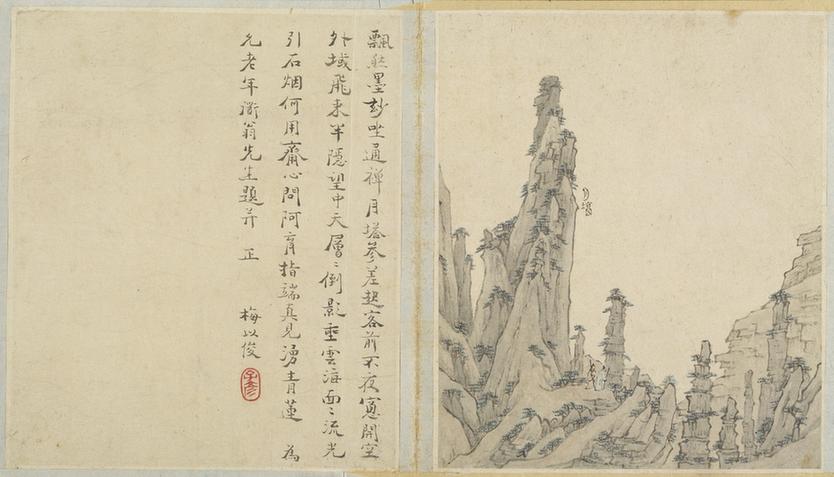 飄然墨妙坐通禪月塔參差起客前不夜窻開空
外域飛來半隱望中天層〻倒影垂雲海面〻流光
引石烟何用齋心問阿育指端真見湧青蓮 為
允老年衢翁先生題并 正
梅以俊
月塔